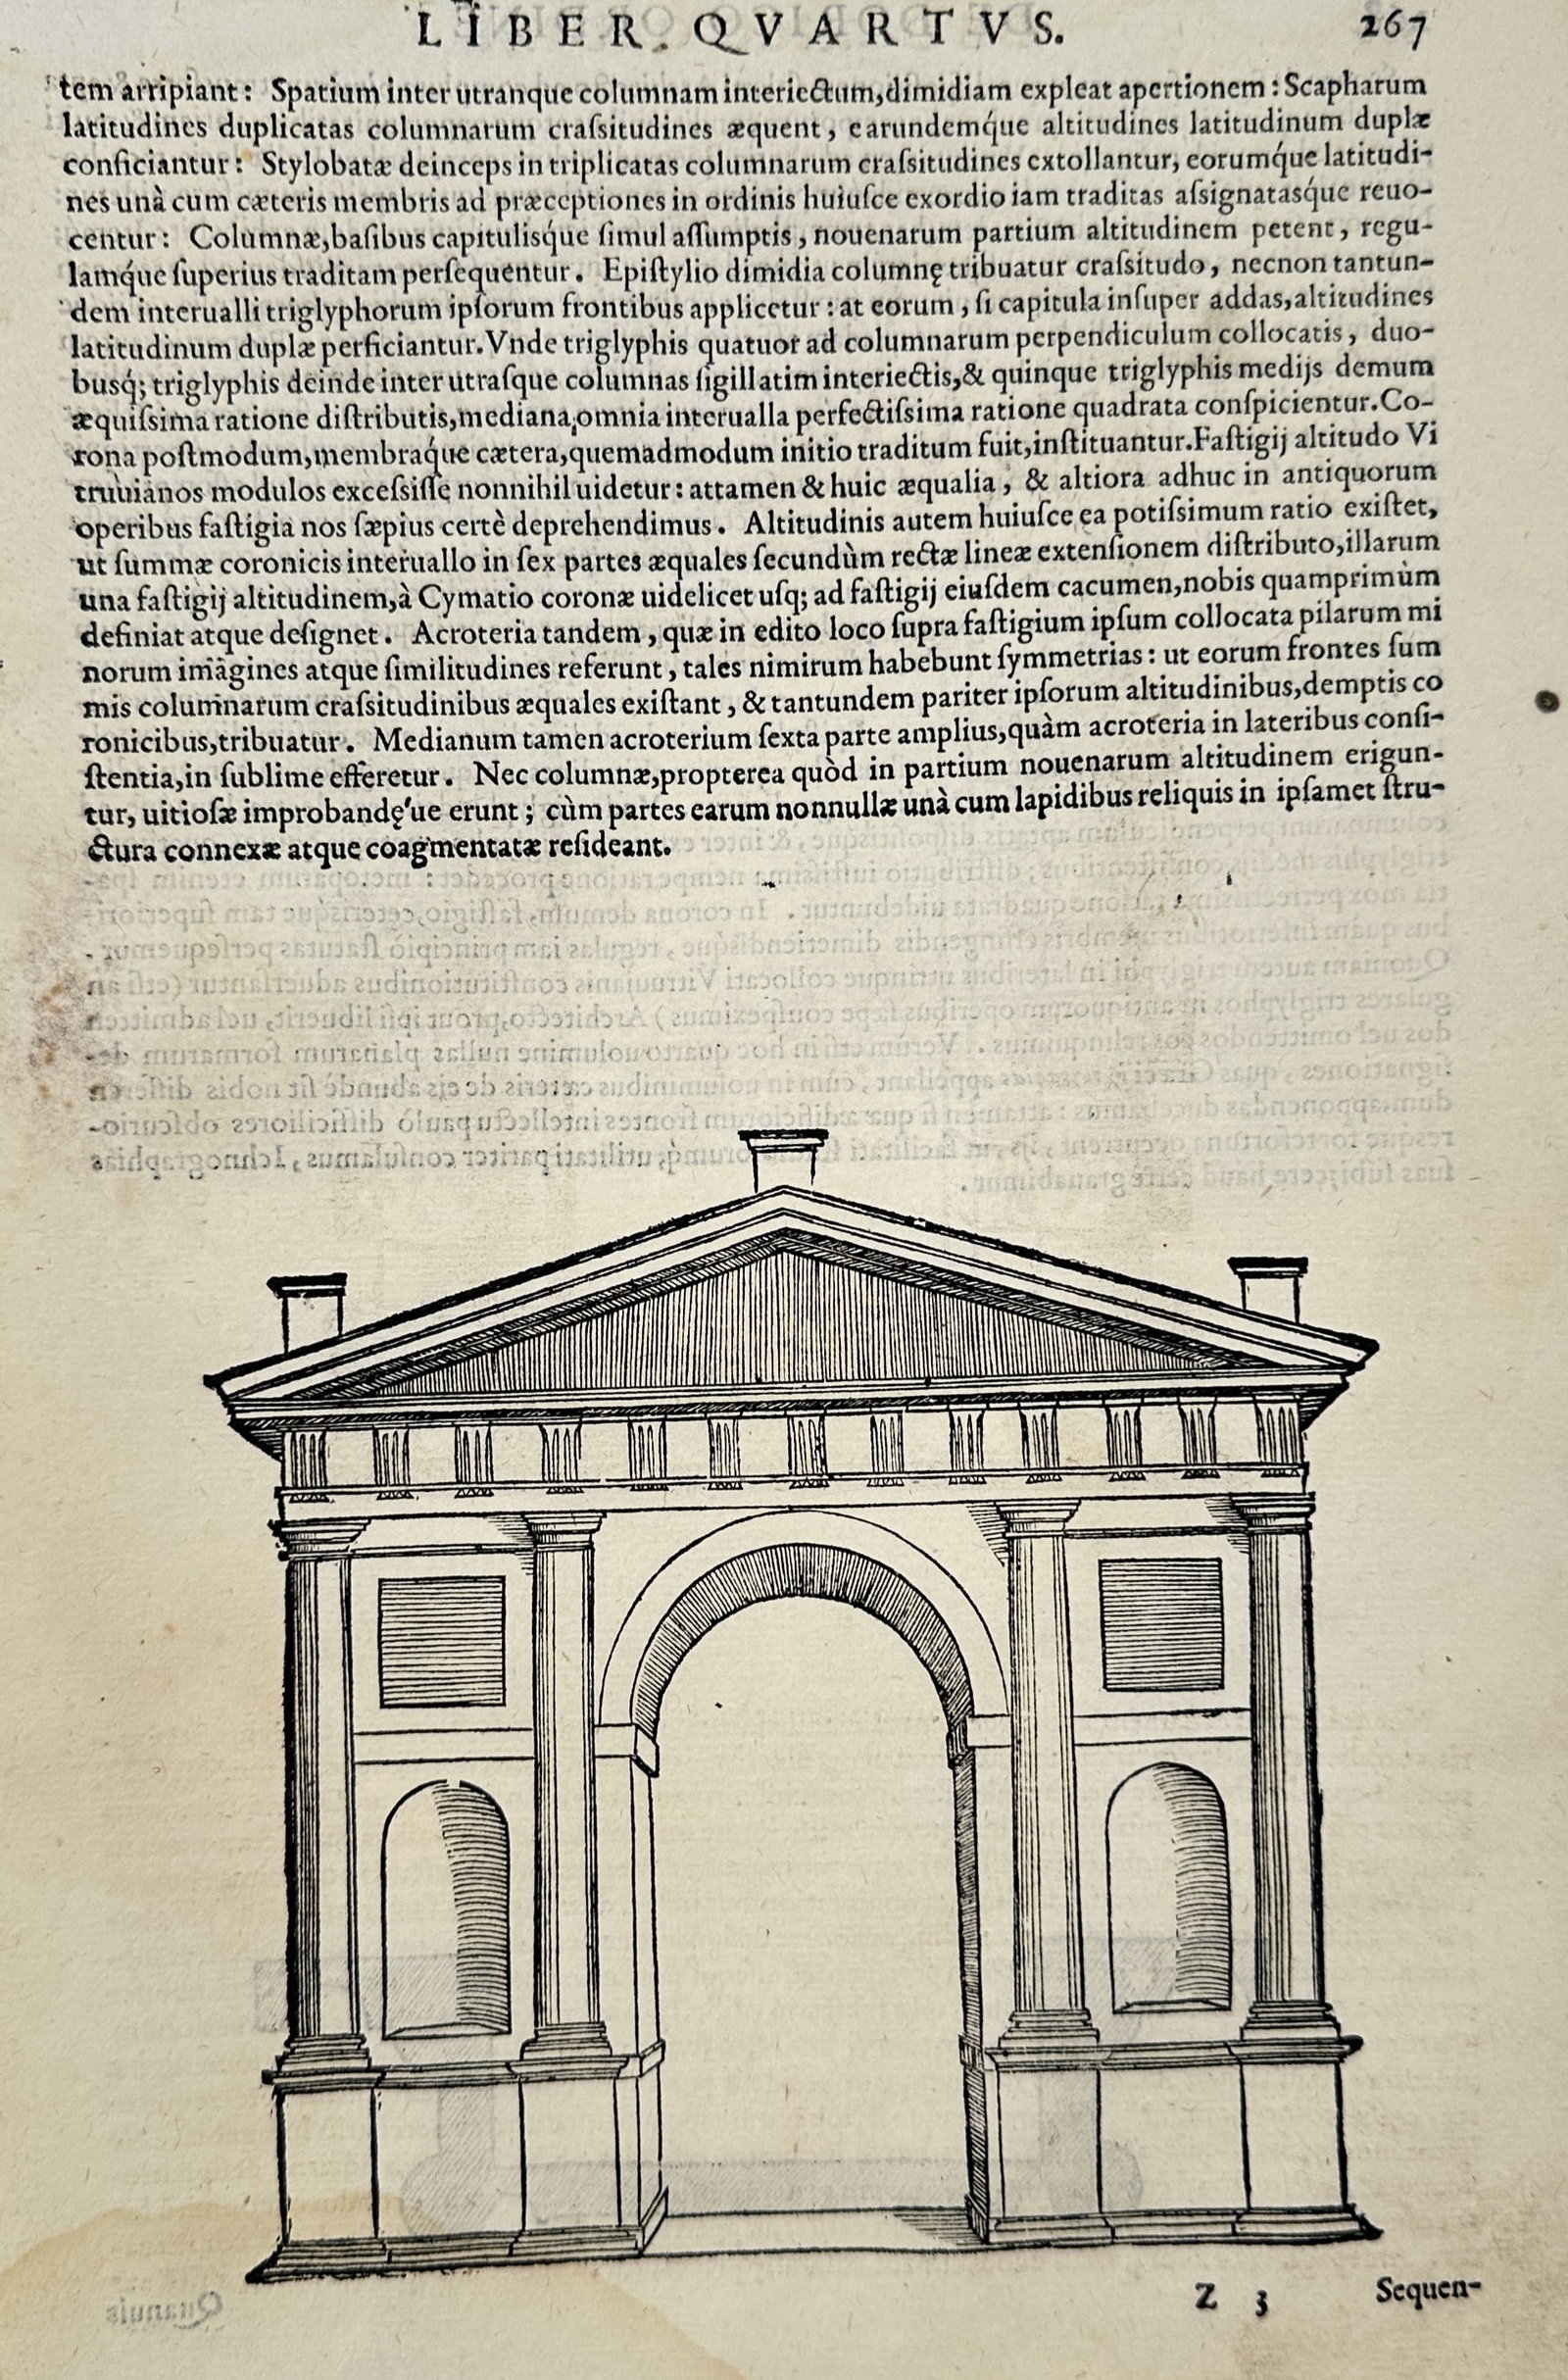 LIBER. QVARTVS. 267
tem arripiant: Spatium inter utranque columnam interiectum, dimidiam expleat apertionem: Scapharum
latitudines duplicatas columnarum craſsitudines æquent, earundemq́ue altitudines latitudinum duplæ
conficiantur: Stylobatæ deinceps in triplicatas columnarum craſsitudines extollantur, eorumq́ue latitudi-
nes unà cum cæteris membris ad præceptiones in ordinis huiuſce exordio iam traditas aſsignatasq́ue reuo-
centur: Columnæ, baſibus capitulisq́ue ſimul aſſumptis, nouenarum partium altitudinem petent, regu-
lamq́ue ſuperius traditam perſequentur. Epiſtylio dimidia columnę tribuatur craſsitudo, necnon tantun-
dem interualli triglyphorum ipſorum frontibus applicetur: at eorum, ſi capitula inſuper addas, altitudines
latitudinum duplæ perficiantur. Vnde triglyphis quatuor ad columnarum perpendiculum collocatis, duo-
busq́; triglyphis deinde inter utraſque columnas ſigillatim interiectis, & quinque triglyphis medijs demum
æquiſsima ratione diſtributis, mediana, omnia interualla perfectiſsima ratione quadrata conſpicientur. Co-
rona poſtmodum, membraq́ue cætera, quemadmodum initio traditum fuit, inſtituantur. Faſtigij altitudo Vi
truuianos modulos exceſsiſſe nonnihil uidetur: attamen & huic æqualia, & altiora adhuc in antiquorum
operibus faſtigia nos ſæpius certè deprehendimus. Altitudinis autem huiuſce ea potiſsimum ratio exiſtet,
ut ſummæ coronicis interuallo in ſex partes æquales ſecundùm rectæ lineæ extenſionem diſtributo, illarum
una faſtigij altitudinem, à Cymatio coronæ uidelicet uſq; ad faſtigij eiuſdem cacumen, nobis quamprimùm
definiat atque deſignet. Acroteria tandem, quæ in edito loco ſupra faſtigium ipſum collocata pilarum mi
norum imagines atque ſimilitudines referunt, tales nimirum habebunt ſymmetrias: ut eorum frontes ſum
mis columnarum craſsitudinibus æquales exiſtant, & tantundem pariter ipſorum altitudinibus, demptis co
ronicibus, tribuatur. Medianum tamen acroterium ſexta parte amplius, quàm acroteria in lateribus conſi-
ſtentia, in ſublime efferetur. Nec columnæ, propterea quòd in partium nouenarum altitudinem erigun-
tur, uitioſæ improbandę'ue erunt; cùm partes earum nonnullæ unà cum lapidibus reliquis in ipſamet ſtru-
ctura connexæ atque coagmentatæ reſideant.
Z 3 Sequen-